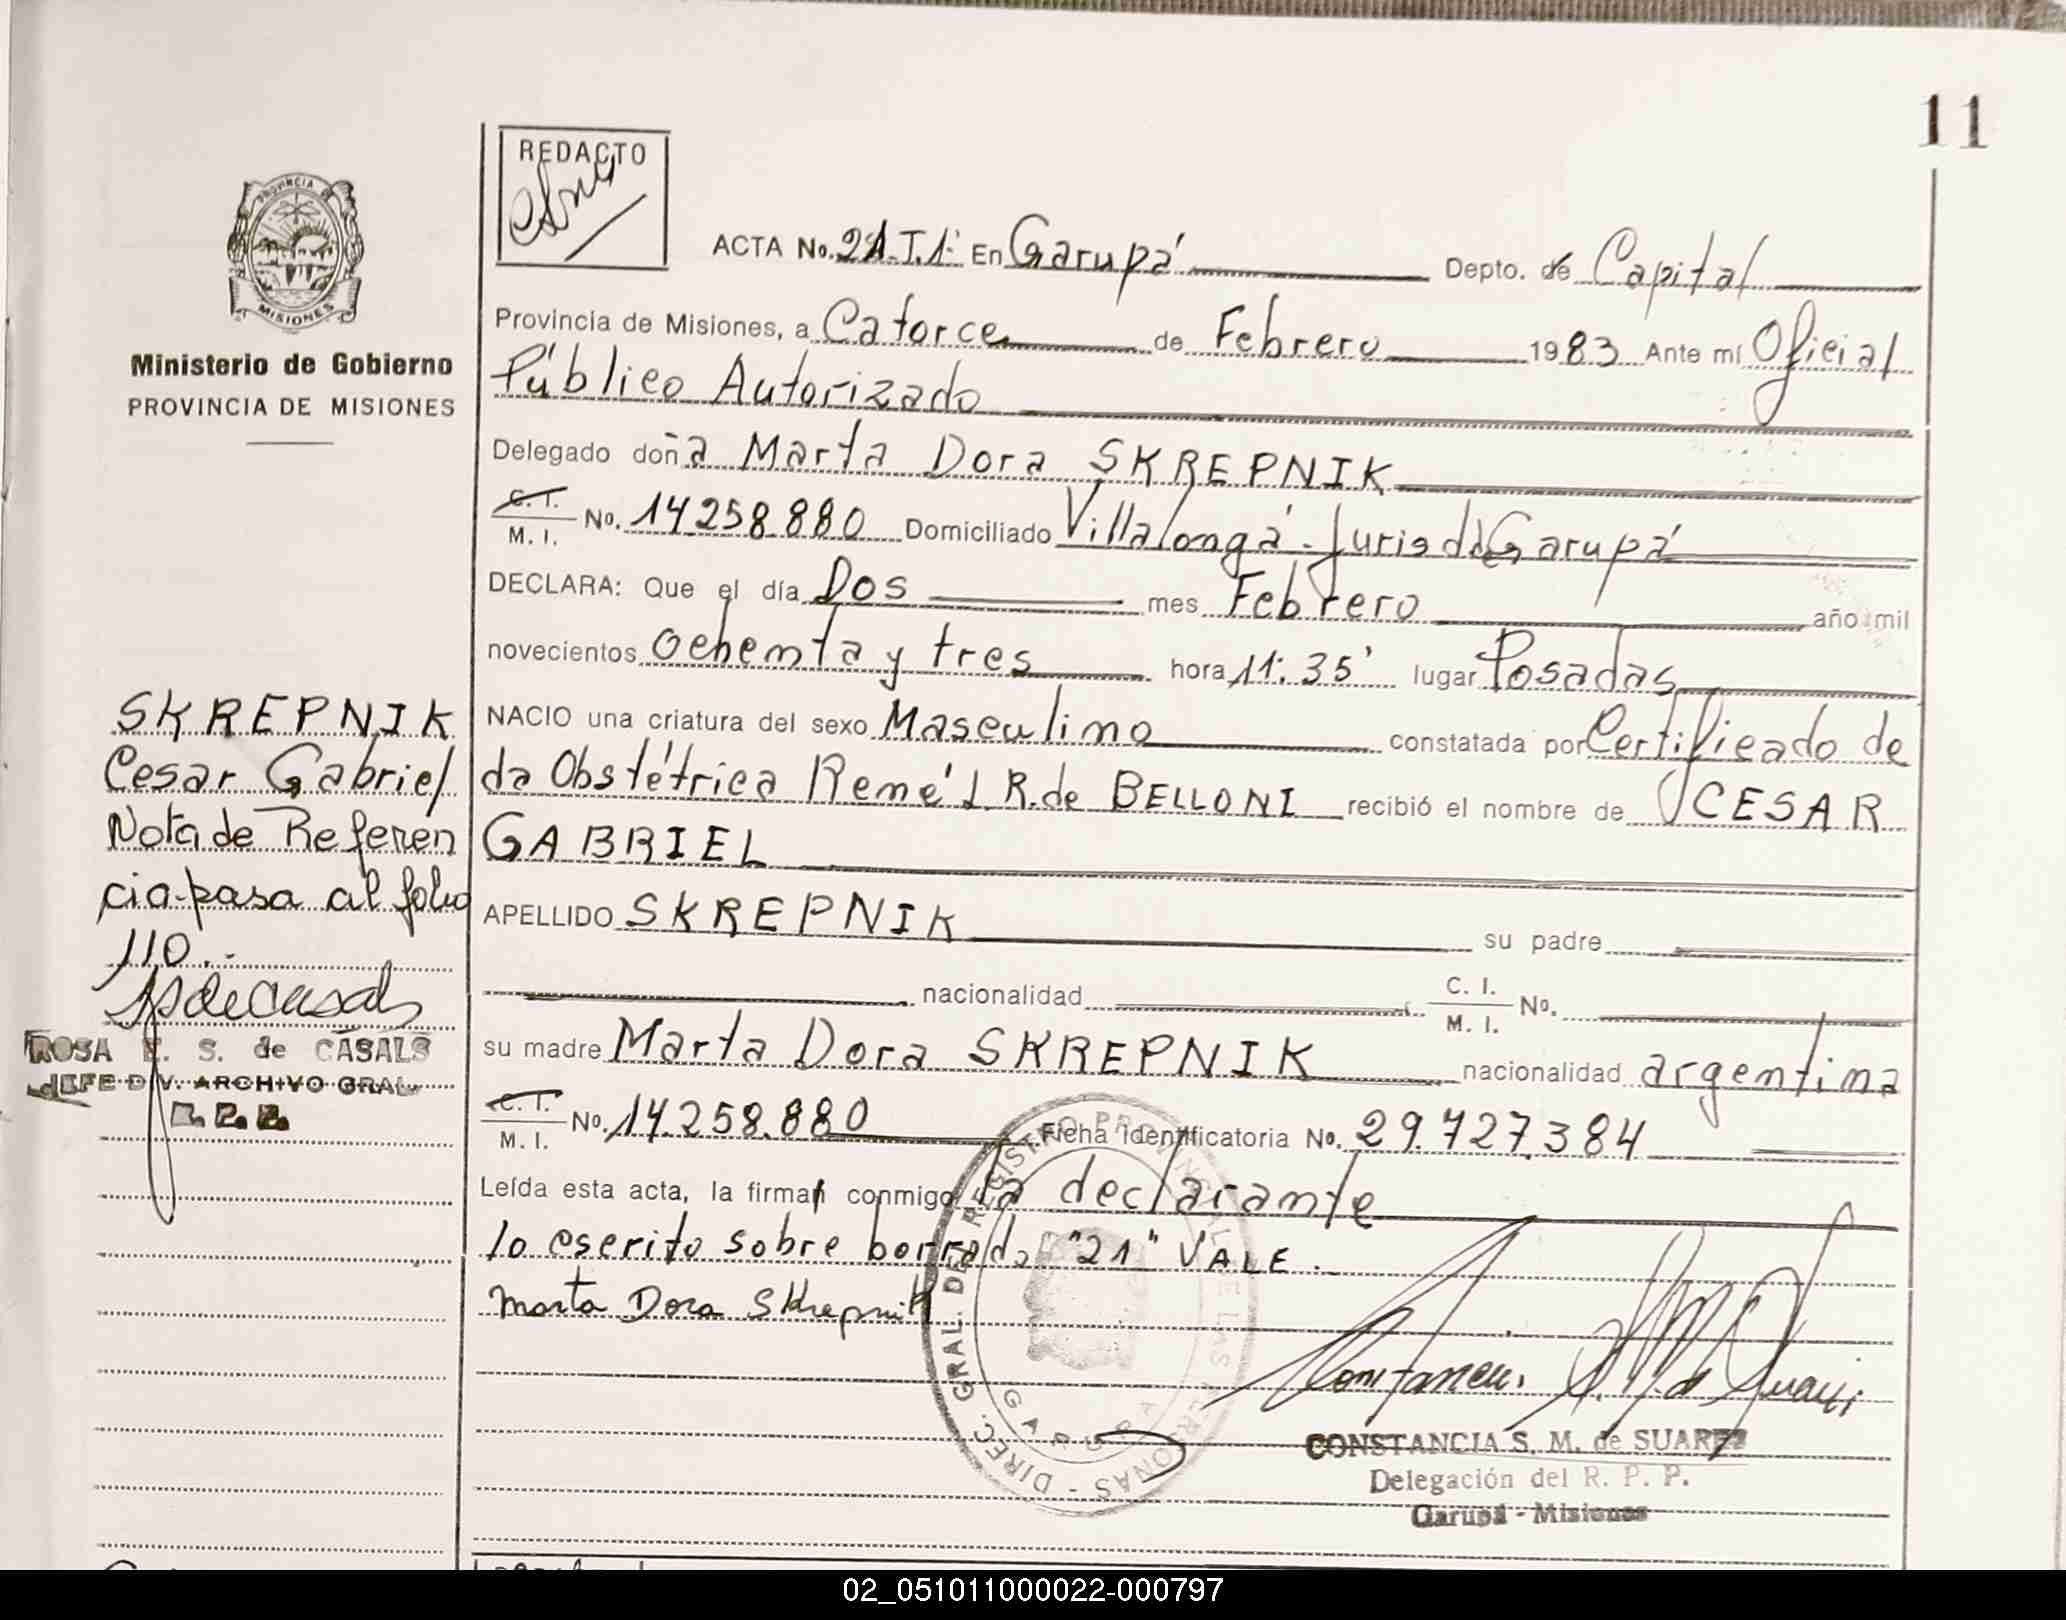 11
REDACTO
PROVINCIA DE
MISIONES
Ministerio de Gobierno
PROVINCIA DE MISIONES
ACTA No. 21.T.1º En Garupá Depto. de Capital
Provincia de Misiones, a Catorce de Febrero 1983 Ante mí Oficial
Público Autorizado
Delegado doña Marta Dora SKREPNIK
C. I.
M. I. No. 14.258.880 Domiciliado Villalonga - Jurisd. Garupá
DECLARA: Que el día Dos mes Febrero año mil
novecientos ochenta y tres hora 11:35' lugar Posadas
NACIO una criatura del sexo Masculino constatada por Certificado de
da Obstétrica René J. R. de BELLONI recibió el nombre de CESAR
GABRIEL
APELLIDO SKREPNIK su padre
nacionalidad C. I.
M. I. No.
su madre Marta Dora SKREPNIK nacionalidad argentina
C. I.
M. I. No. 14.258.880 Ficha Identificatoria No. 29.727.384
Leída esta acta, la firman conmigo la declarante
lo escrito sobre borrado "21" VALE.
Marta Dora Skrepnik
SKREPNIK
Cesar Gabriel
Nota de Referen
cia-pasa al folio
110.-
ROSA E. S. de CASALS
JEFE DIV. ARCHIVO GRAL.
DIREC. GRAL. DEL REGISTRO PROVINCIAL DE LAS PERSONAS -
GARUPA
Constancia S. M. de Suarez
CONSTANCIA S. M. de SUAREZ
Delegación del R. P. P.
Garupá - Misiones
02_051011000022-000797